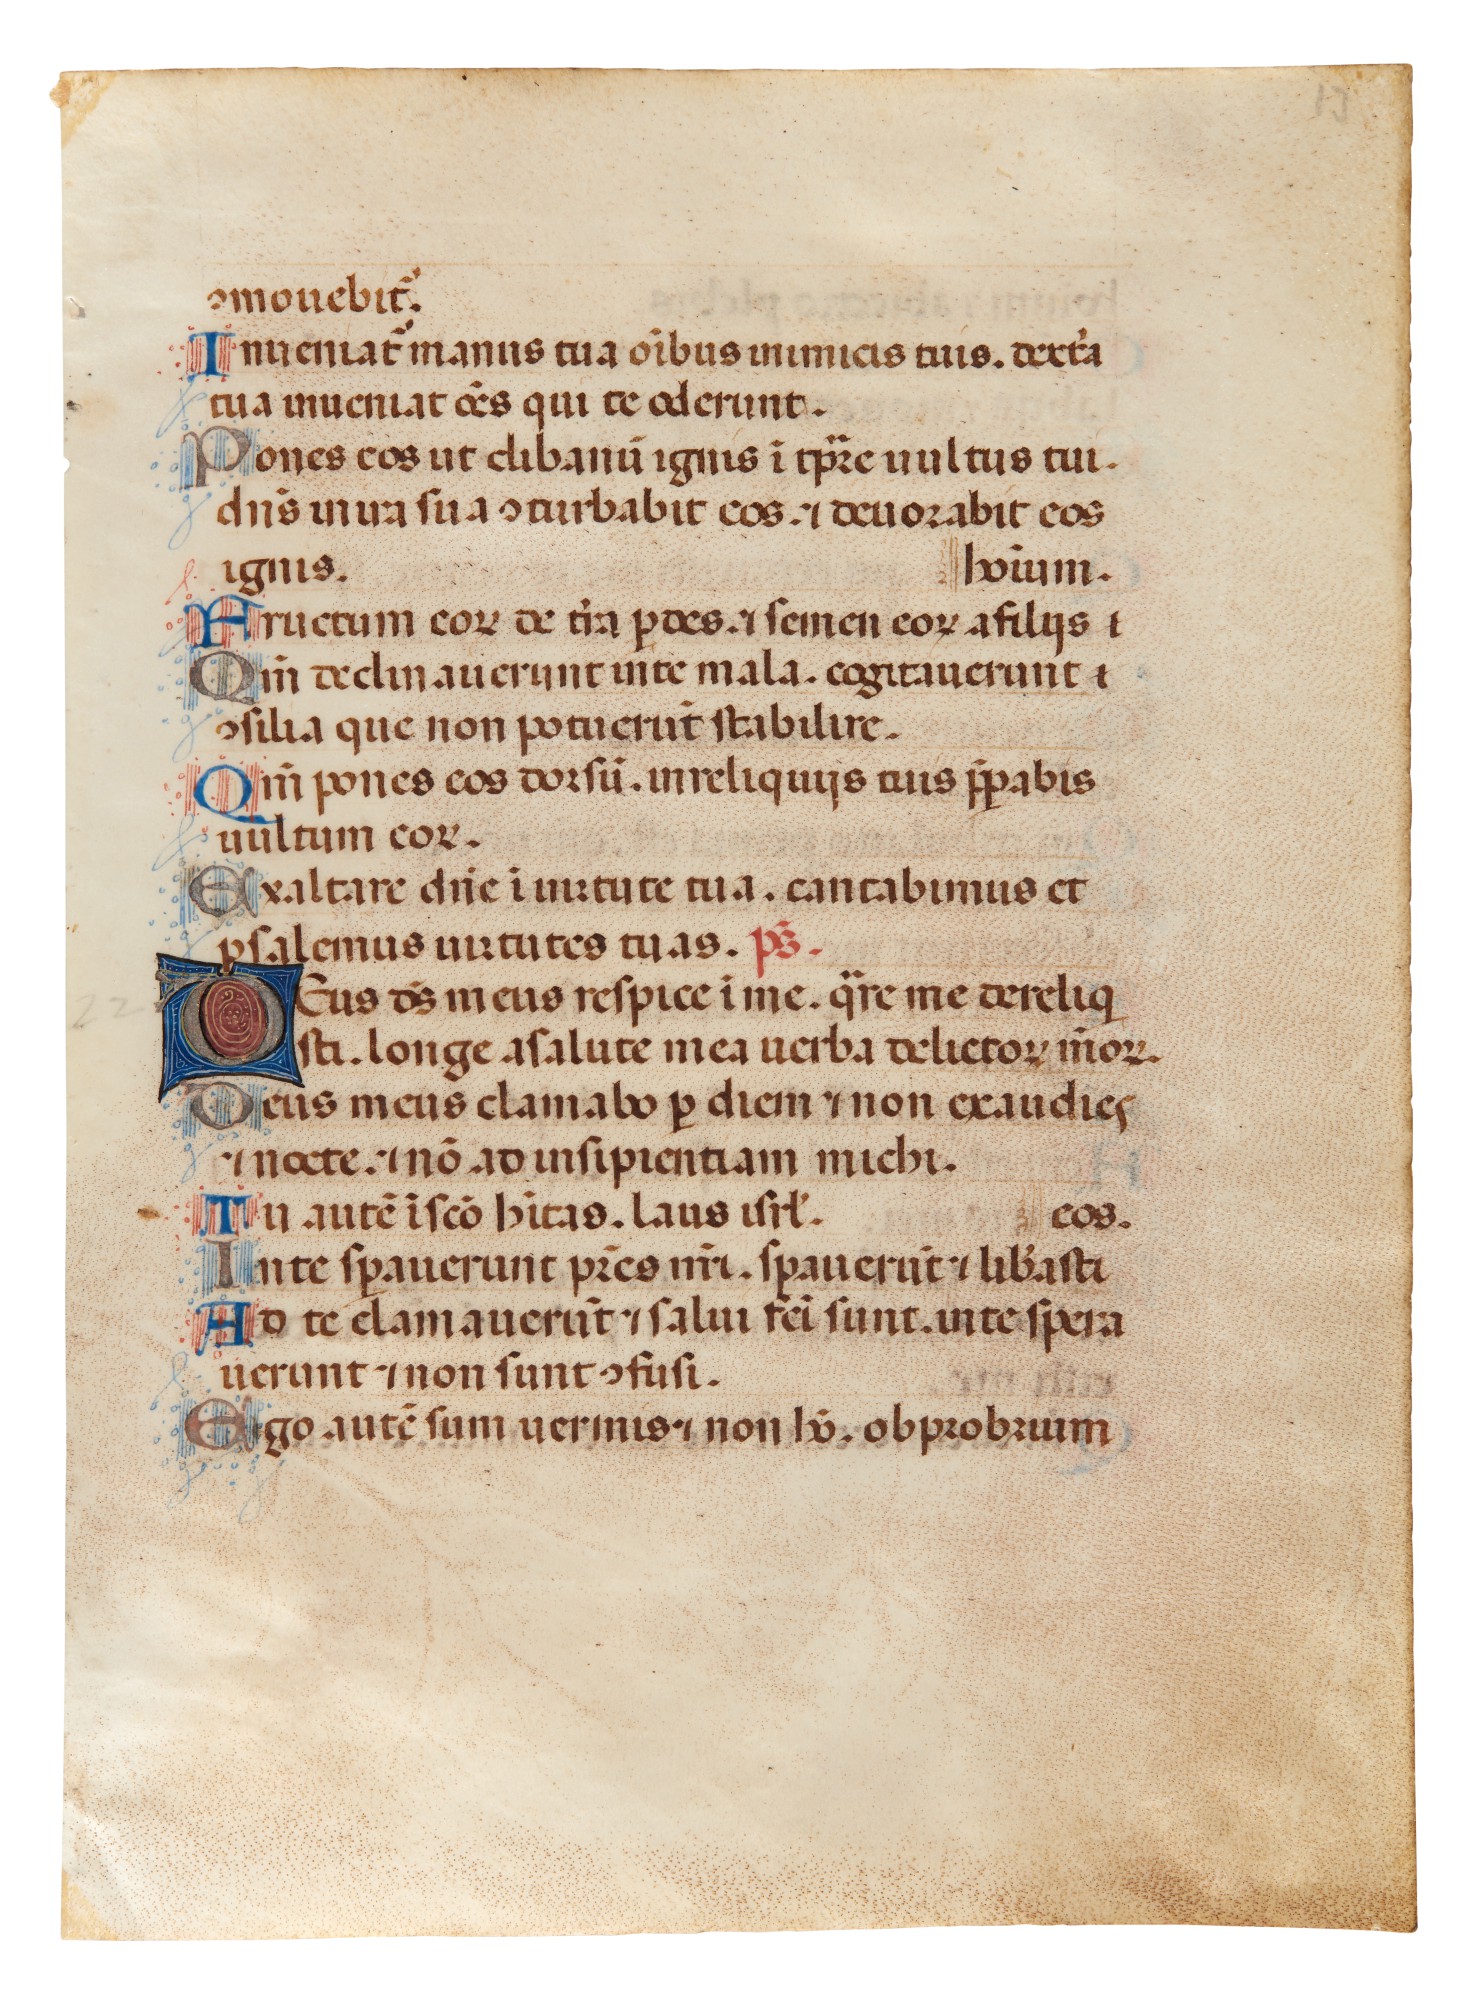 ꝯmouebit᷑.
Inueniat᷑ manus tua oı̄bus inimicis tuis. dext̕a
tua inueniat oēs qui te oderunt.
Pones eos ut clibanū ignis ī tp̄re uultus tui.
dn̄s in ira sua ꝯturbabit eos. ⁊ deuorabit eos
ignis.
hoı̄um.
Fructum eoꝝ de t̕ra ꝑdes. ⁊ semen eoꝝ a filijs
Qm̄ declinauerunt in te mala. cogitauerunt
ꝯsilia que non potuerūt stabilire.
Qm̄ pones eos dorsū. in reliquijs tuis p̄ꝑabis
uultum eoꝝ.
Exaltare dn̄e ī uirtute tua. cantabimus et
psalemus uirtutes tuas. ps̄.
DEus ds̄ meus respice ī me. qr̄e me dereliq
sti. longe a salute mea uerba delictoꝝ m̄oꝝ.
Deus meus clamabo ꝑ diem ⁊ non exaudies
⁊ nocte. ⁊ nō ad insipientiam michi.
Tu autē ī scō h̄itas. laus isrł.
eos.
In te sꝑauerunt pr̄es nr̄i. sꝑauerūt ⁊ lib̕asti
Ad te clamauerūt ⁊ salui fc̄i sunt. in te spera
uerunt ⁊ non sunt ꝯfusi.
Ego autē sum uermis ⁊ non hō. obprobrium
22